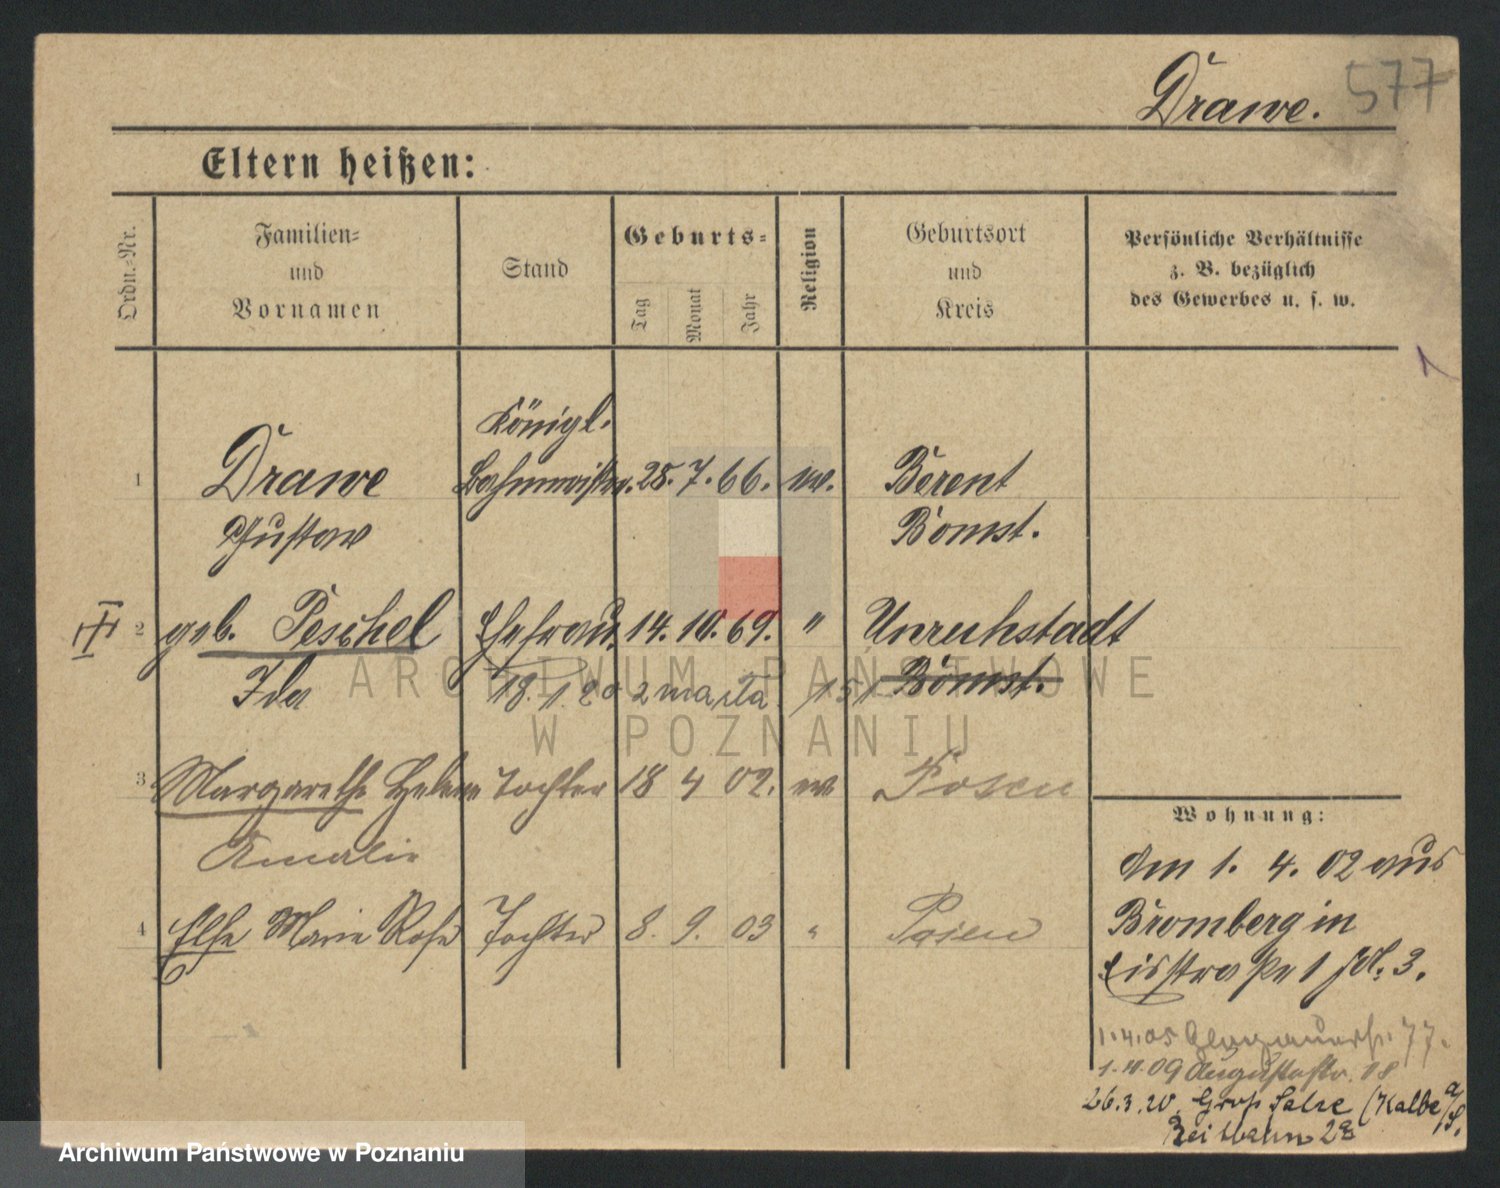 Drawe. 577
Eltern heißen:
Ordn.-Nr.
Familien-
und
Vornamen
Stand
Geburts-
Tag
Monat
Jahr
Religion
Geburtsort
und
Kreis
Persönliche Verhältnisse
z. B. bezüglich
des Gewerbes u. s. w.
Königl.
1 Drawe Bahnmeister. 28. 7. 66. ev. Berent
Gustav Bomst.
III 2 geb. Peschel Ehefrau. 14. 10. 69. " Unruhstadt
Ida 18. 1. 20 2 Bomst.
3 Margarethe Helene Tochter 18 4 02. ev Posen
Amalie
4 Else Marie Rosa Tochter 8. 9. 03 " Posen
Wohnung:
Am 1. 4. 02 aus
Bromberg in
1 3.
1.4.05 Glogauerstr. 77.
09 Augustastr. 18
26.3.20. Groß Salze (Kalbe a/S.
Archiwum Państwowe
w Poznaniu
Archiwum Państwowe w Poznaniu